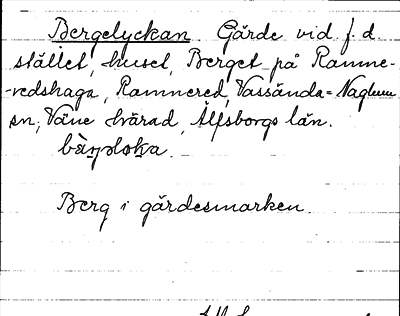 Bergelyckan Gärde vid f.d.
stället, huset, Berget på Ramne-
-redshaga, Ramnered, Vassända-Naglum
sn, Väne härad, Älfsborgs län.
Berg i gärdesmarken.